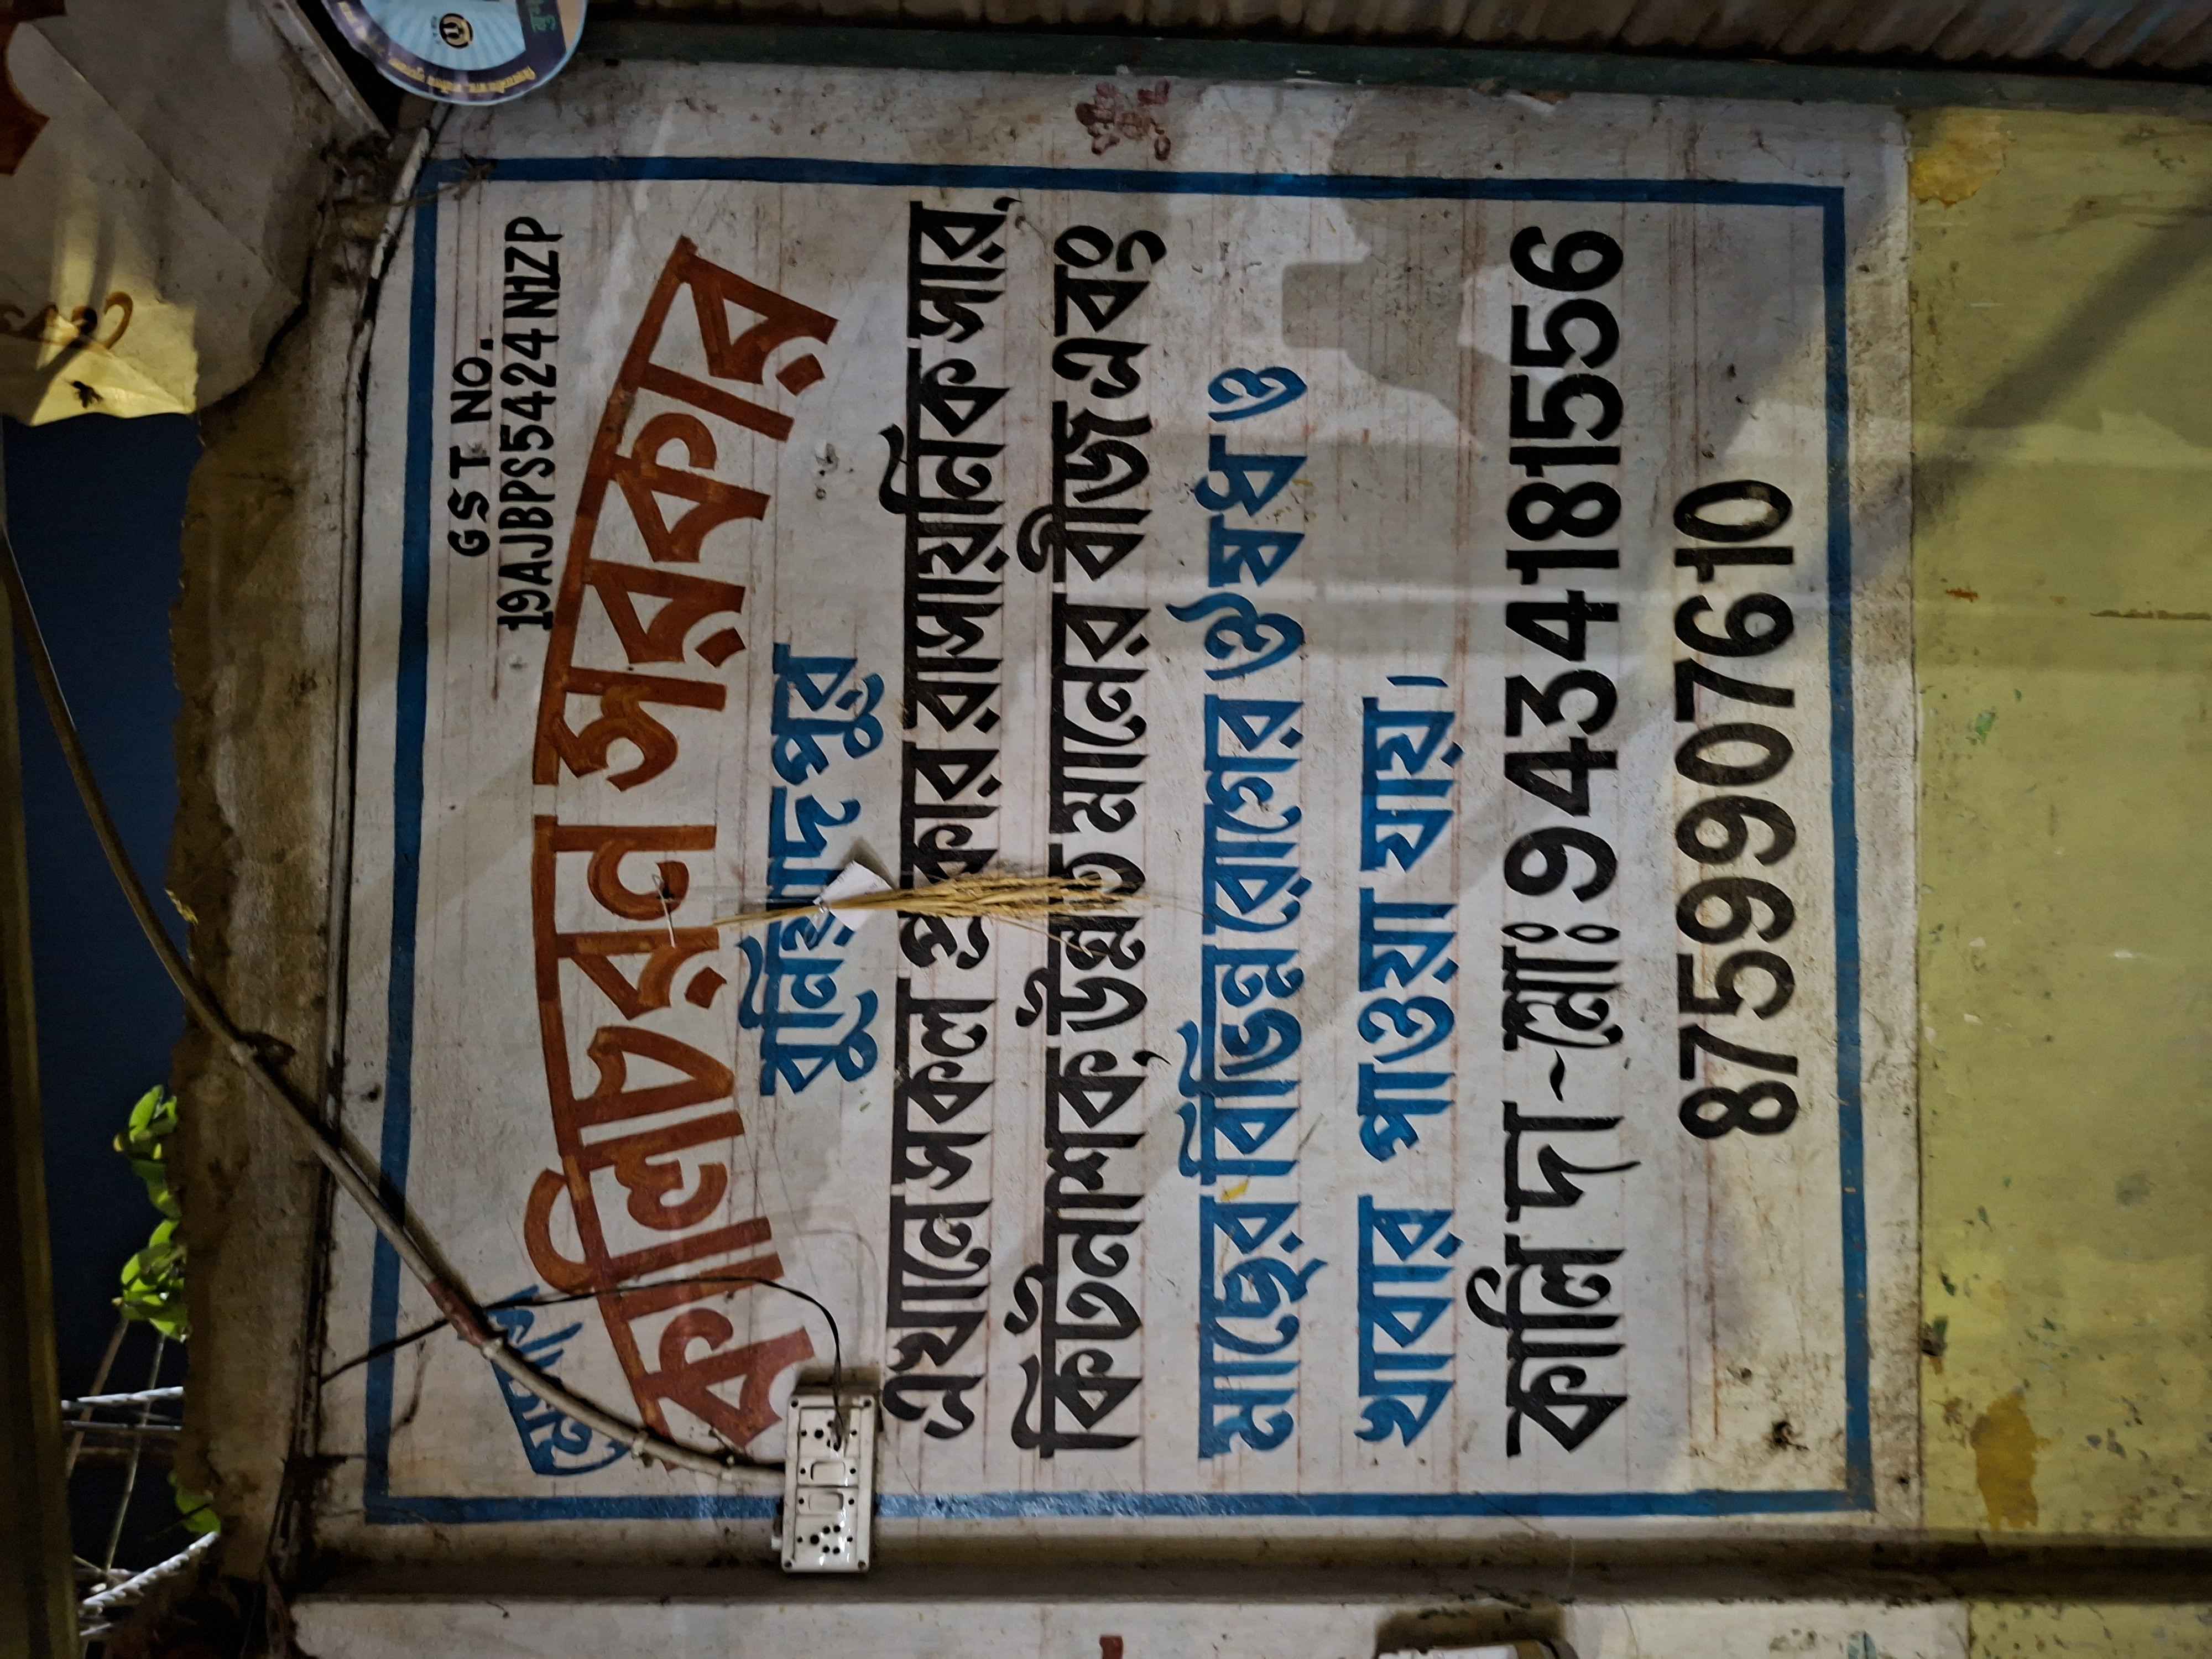 GST NO.
19AJBPS5424N1ZP
মেসার্স
কালিচরন সরকার
বুনিয়াদপুর
এখানে সকল প্রকার রাসায়নিক সার,
কিটনাশক, উন্নত মানের বীজ এবং
মাছের বিভিন্ন রোগের ঔষধ ও
খাবার পাওয়া যায়।
কালি দা - মোঃ 9434181556
8759907610